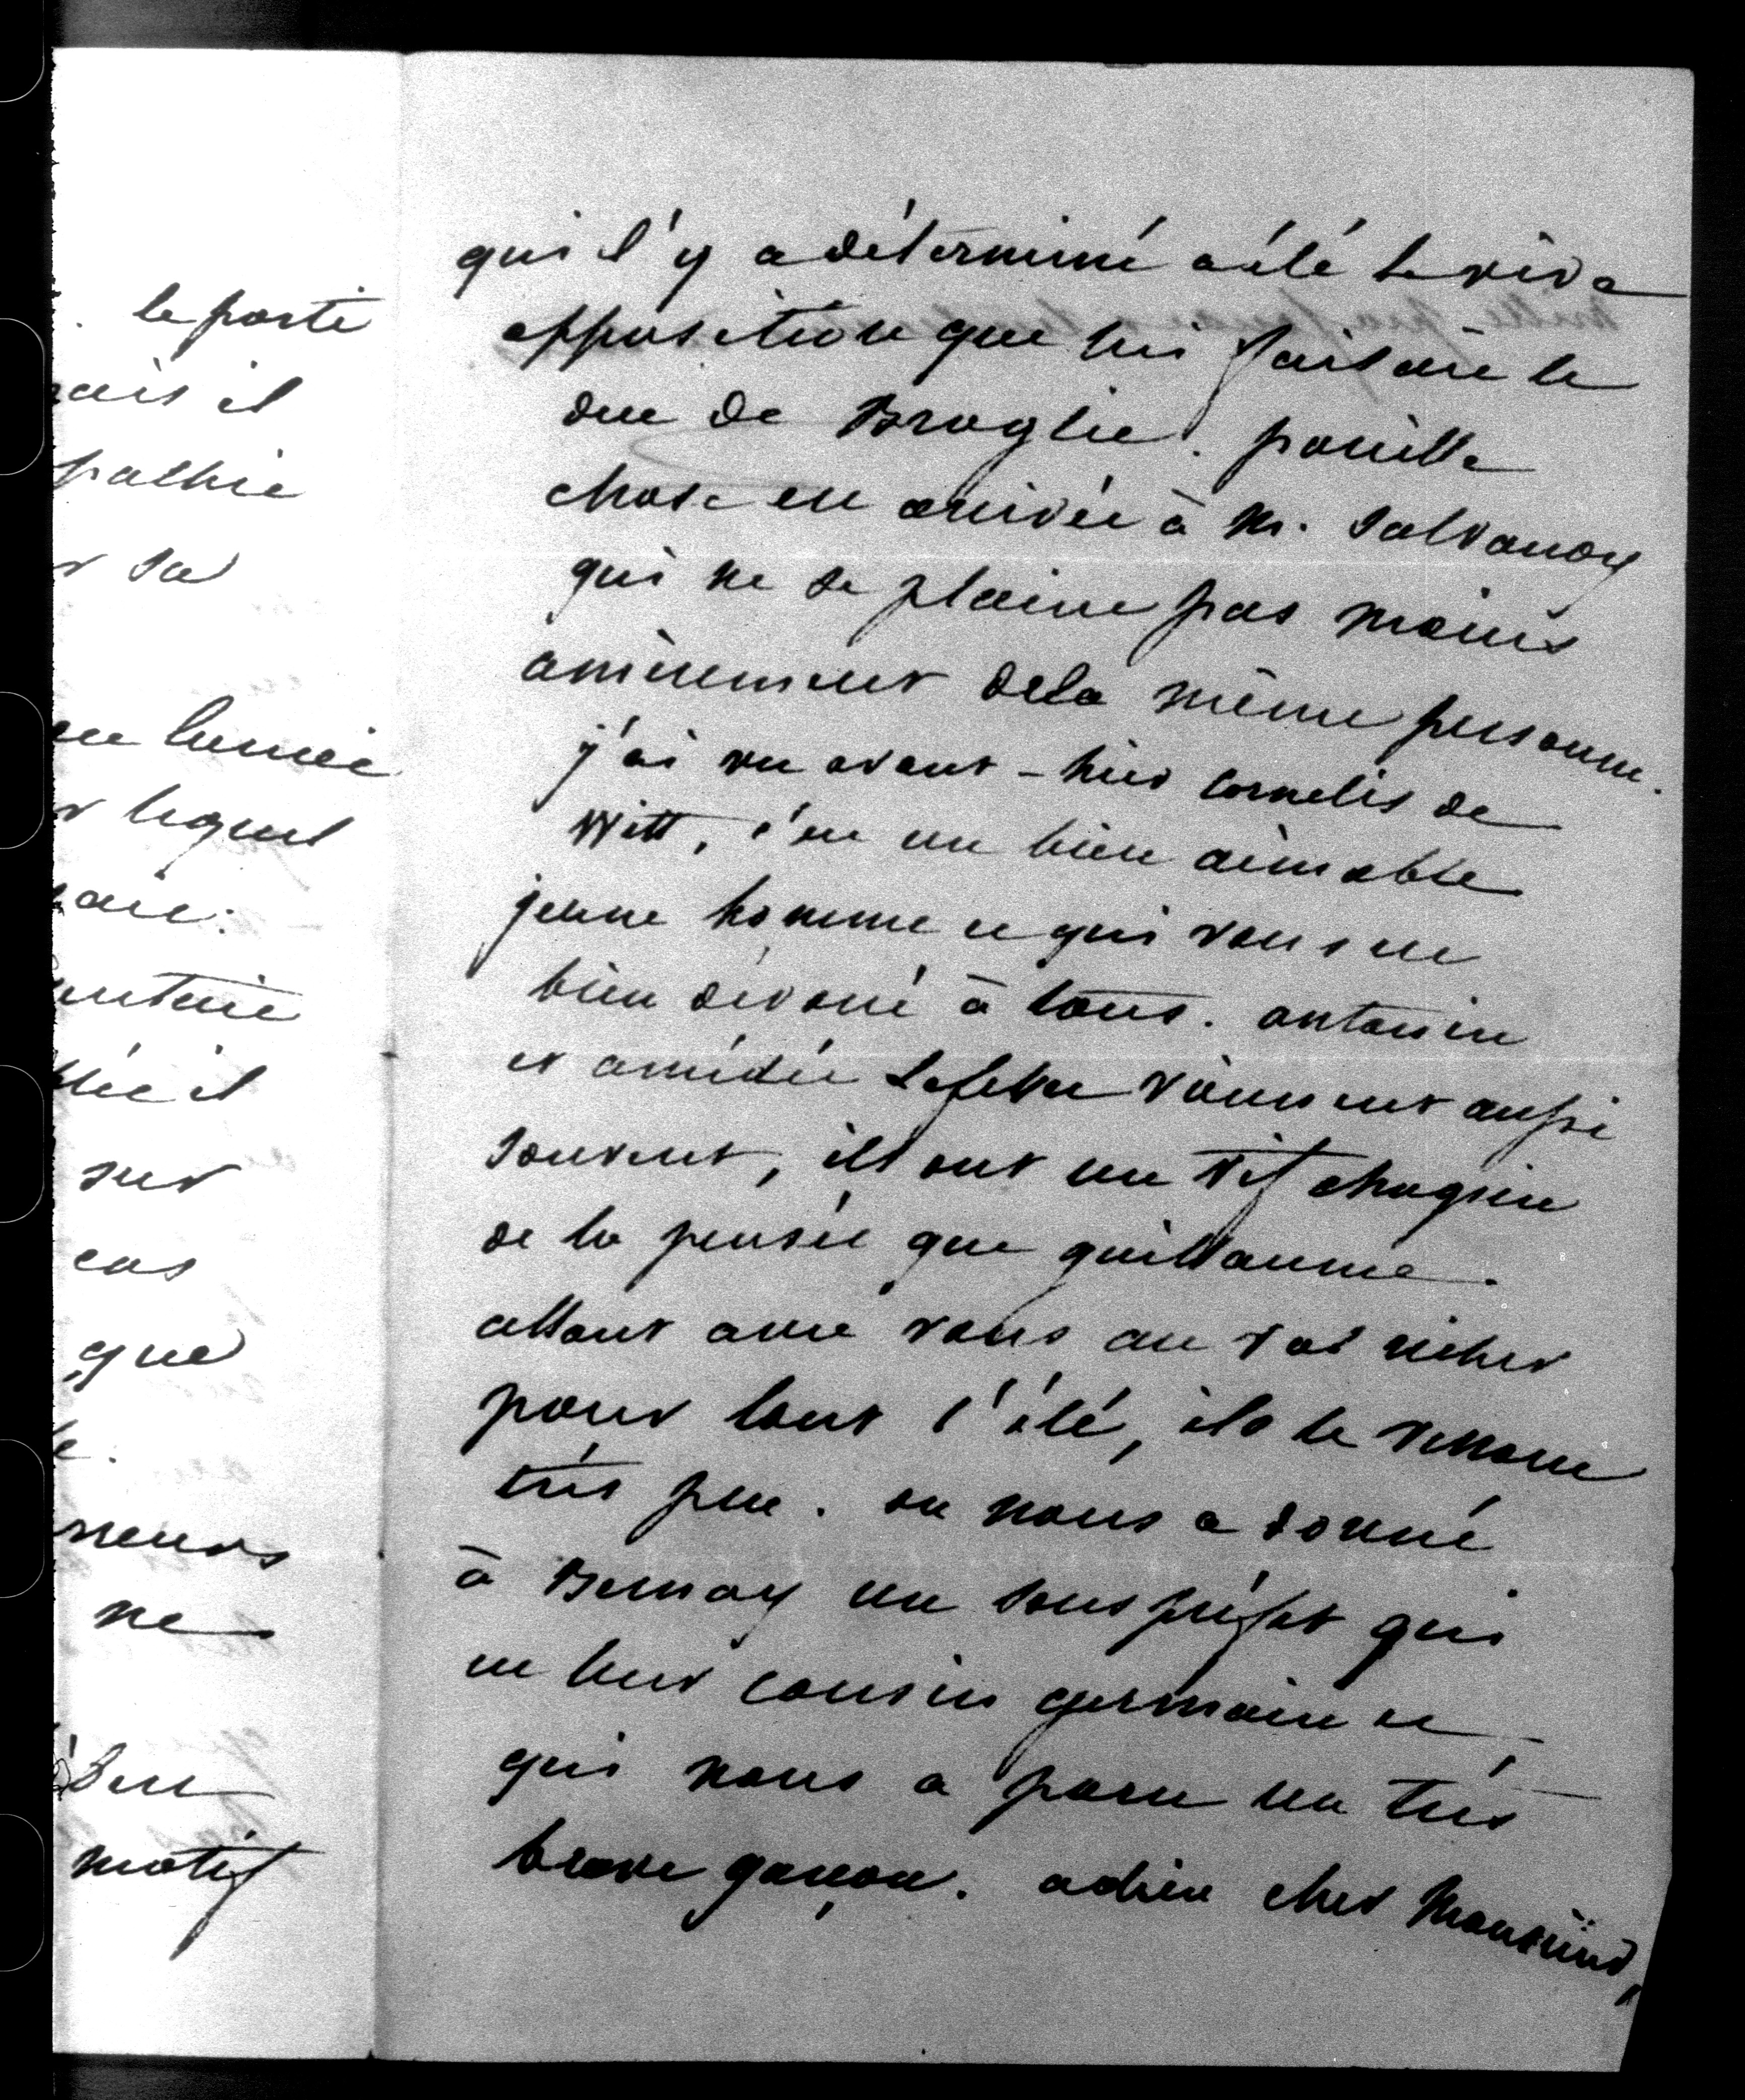 le parti
ais il
pathie
r sa
en lumiè
r lequel
aie.
entaire
blée il
sur
cas
que
neurs
ne
motif
qui l'y a déterminé a été la vive
opposition que lui faisait le
duc de Broglie. pareille
chose est arrivée à M. Salvandy
qui ne se plaint pas moins
amèrement dela même personne.
j'ai vu avant-hier cornelis de
Witt, c'est un bien aimable
jeune homme et qui vous est
bien dévoué à tous. antonin
et amédée Lefebvre viennent aussi
souvent, ils ont un vif chagrin
de la pensée que guillaume
allant avec vous au val richer
pour tout l'été, ils le verront
très peu. on nous a donné
à Bernay un sous préfet qui
est leur cousin germain et
qui nous a paru un très
brave garçon. adieu cher Monsieur,